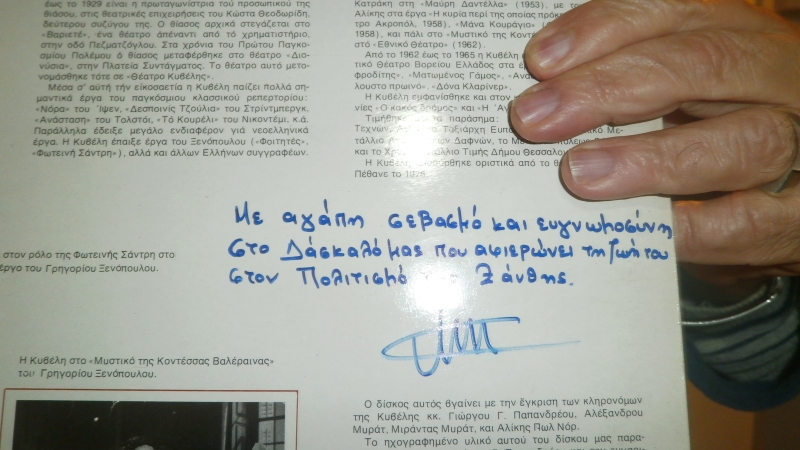 έως το 1929 είναι η πρωταγωνίστρια τού προσωπικού της
θιάσου, στις θεατρικές επιχειρήσεις του Κώστα Θεοδωρίδη,
δεύτερου συζύγου της. Ο θίασος αρχικά στεγάζεται στο
«Βαριετέ», ένα θέατρο απέναντι από τό χρηματιστήριο,
στην οδό Πεζματζόγλου. Στα χρόνια του Πρώτου Παγκο-
σμίου Πολέμου ὁ θίασος μεταφέρθηκε στο θέατρο «Διο-
νύσια», στην Πλατεία Συντάγματος. Το θέατρο αυτό μετο-
νομάσθηκε τότε σε «Θέατρο Κυβέλης».
Μέσα σ' αυτή τήν εἰκοσαετία η Κυβέλη παίζει πολλά ση-
μαντικά έργα του παγκόσμιου κλασσικού ρεπερτορίου:
«Νόρα» του Ίψεν, «Δεσποινίς Τζούλια» του Στρίντμπεργκ,
«Ανάσταση» του Τολστόι, «Τό Κουρέλι» του Νικοντέμι, κ.ά.
Παράλληλα έδειξε μεγάλο ενδιαφέρον γιά νεοελληνικά
έργα. Η Κυβέλη έπαιξε έργα του Ξενόπουλου («Φοιτητές»,
«Φωτεινή Σάντρη»), αλλά και άλλων Ελλήνων συγγραφέων.
Κατράκη στη «Μαύρη Δαντέλλα» (1953), με τη
Αλίκης στα έργα «Η κυρία περί της οποίας πρόκ
τρο Ακροπόλ, 1958), «Μάνα Κουράγιο» (
1958), και πάλι στο «Μυστικό της Κοντ
στό «Εθνικό Θέατρο» (1962).
Από το 1962 έως το 1965 η Κυβέλη
τικό Θέατρο Βορείου Ελλάδος στα έ
φροδίτης», «Ματωμένος Γάμος», «Ανα
λουστο πρωινό», «Δόνα Κλαρίνερ».
Η Κυβέλη εμφανίσθηκε και στον
νίες «Ο κακός δρόμος» και «Η
Τιμήθηκε τα παράσημα:
Τεχνών, Ταξίαρχη Ευπο Με-
τάλλιο Δαφνών, το Με
και το Χρ λιο Τιμής Δήμου Θεσσαλο
Η Κυβέλη οριστικά από το θ
Πέθανε το 1978.
Με αγάπη σεβασμό και ευγνωμοσύνη
στο Δάσκαλό μας που αφιερώνει τη ζωή του
στον Πολιτισμό Ξάνθης.
στον ρόλο της Φωτεινής Σάντρη στο
έργο του Γρηγορίου Ξενόπουλου.
Η Κυβέλη στο «Μυστικό της Κοντέσσας Βαλέραινας»
του Γρηγορίου Ξενόπουλου.
Ο δίσκος αυτός βγαίνει με την έγκριση των κληρονόμων
της Κυβέλης κκ. Γιώργου Γ. Παπανδρέου, Αλέξανδρου
Μυράτ, Μιράντας Μυράτ, και Αλίκης Πωλ Νόρ.
Το ηχογραφημένο υλικό αυτού του δίσκου μας παρα-